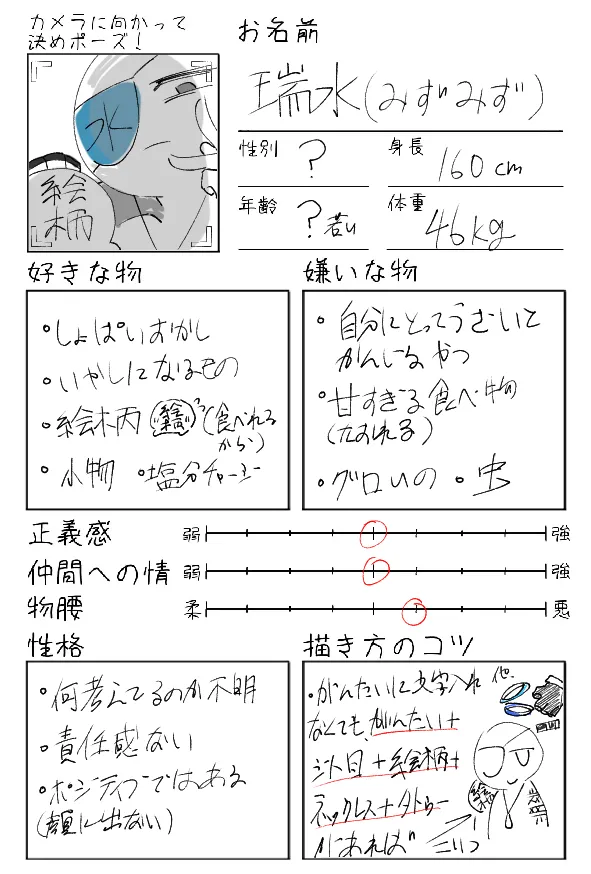 カメラに向かって
決めポーズ！
水
絵
柄
お名前
瑞水(みずみず)
性別 ?
身長 160cm
年齢 ?若い
体重 46kg
好きな物
•しょぱいおかし
•いやしになるもの
•絵柄 絵柄 (食べれる
から)
•小物 •塩分チャージ
嫌いな物
•自分にとってうざいと
かんじるやつ
•甘すぎる食べ物
(たおれる)
•グロいの •虫
正義感 弱 強
仲間への情 弱 強
物腰 柔 悪
性格
•何考えてるのか不明
•責任感ない
•ポジティブではある
(顔に出ない)
描き方のコツ
•がんたいに文字入れ 他.
なくても、がんたい+
ジト目+絵柄+
ネックレス+タトゥー
があれば こいつ
絵柄